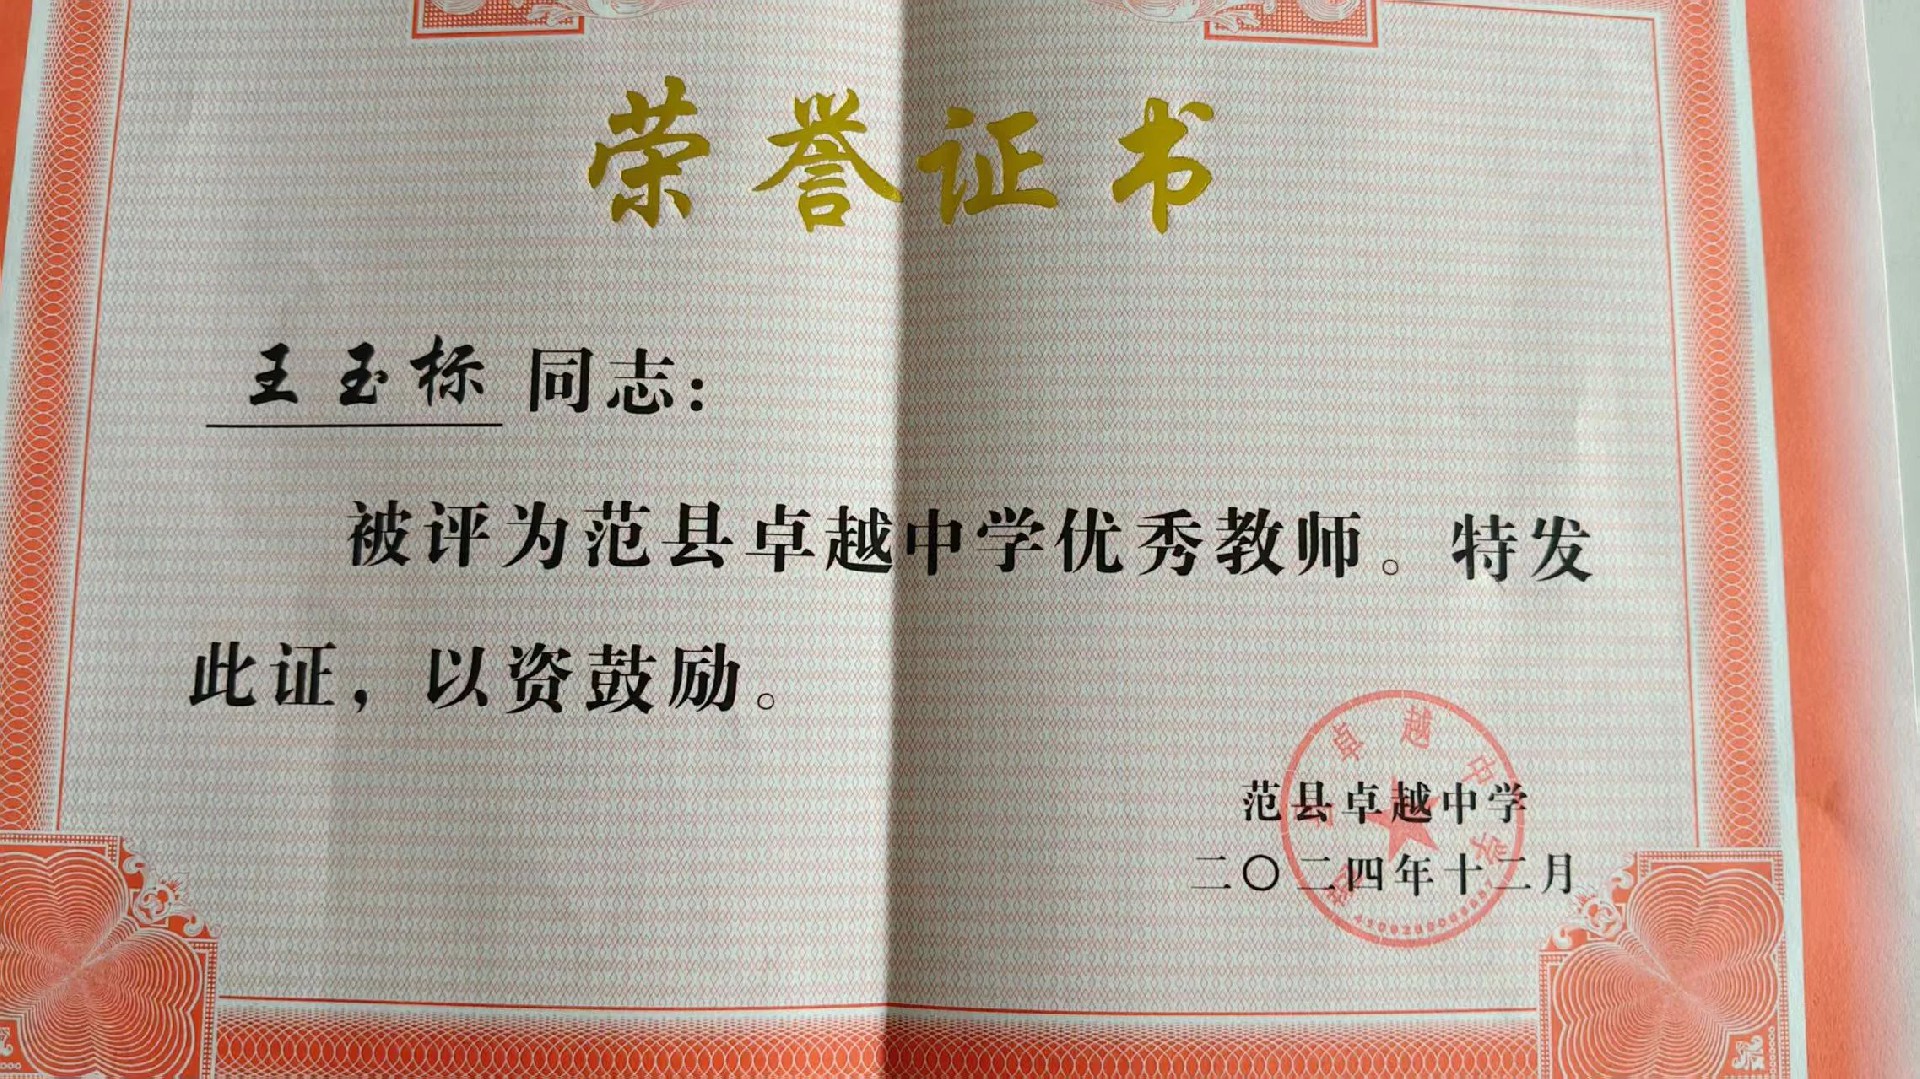 荣誉证书
王玉标 同志：
被评为范县卓越中学优秀教师。特发
此证，以资鼓励。
范县卓越中学
二〇二四年十二月
卓越中学